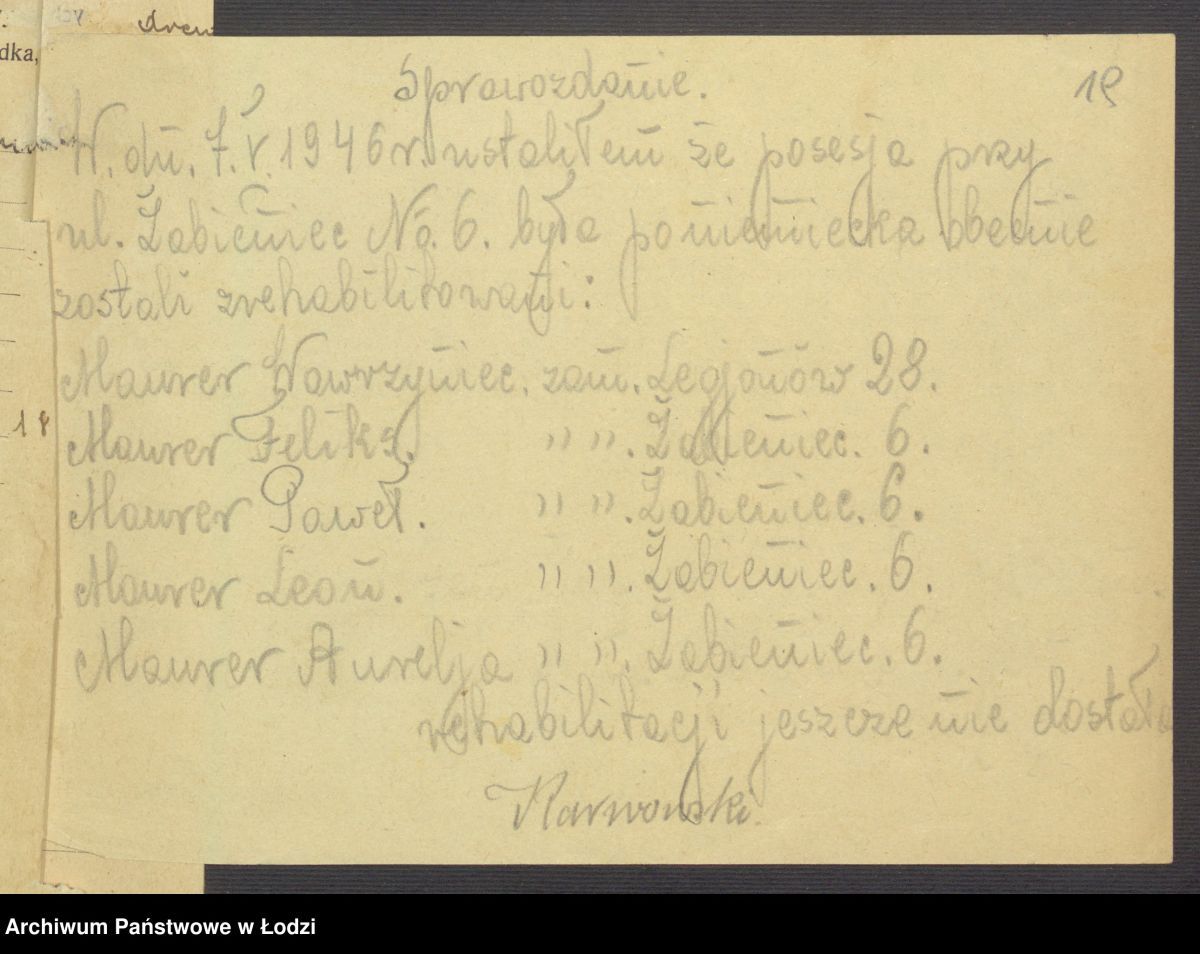 Sprawozdanie.
19
W. dn. 7.V.1946 r. ustaliłem że posesja przy
ul. Żabieniec No. 6. była poniemiecka obecnie
zostali zrehabilitowani:
Maurer Wawrzyniec. zam. Legjonów 28.
Maurer Feliks. " ". Żabieniec. 6.
Maurer Paweł. " ". Żabieniec. 6.
Maurer Leon. " ". Żabieniec. 6.
Maurer Aurelja " ". Żabieniec. 6.
rehabilitacji jeszcze nie dostała
Karwowski.
dka,
18
Archiwum Państwowe w Łodzi